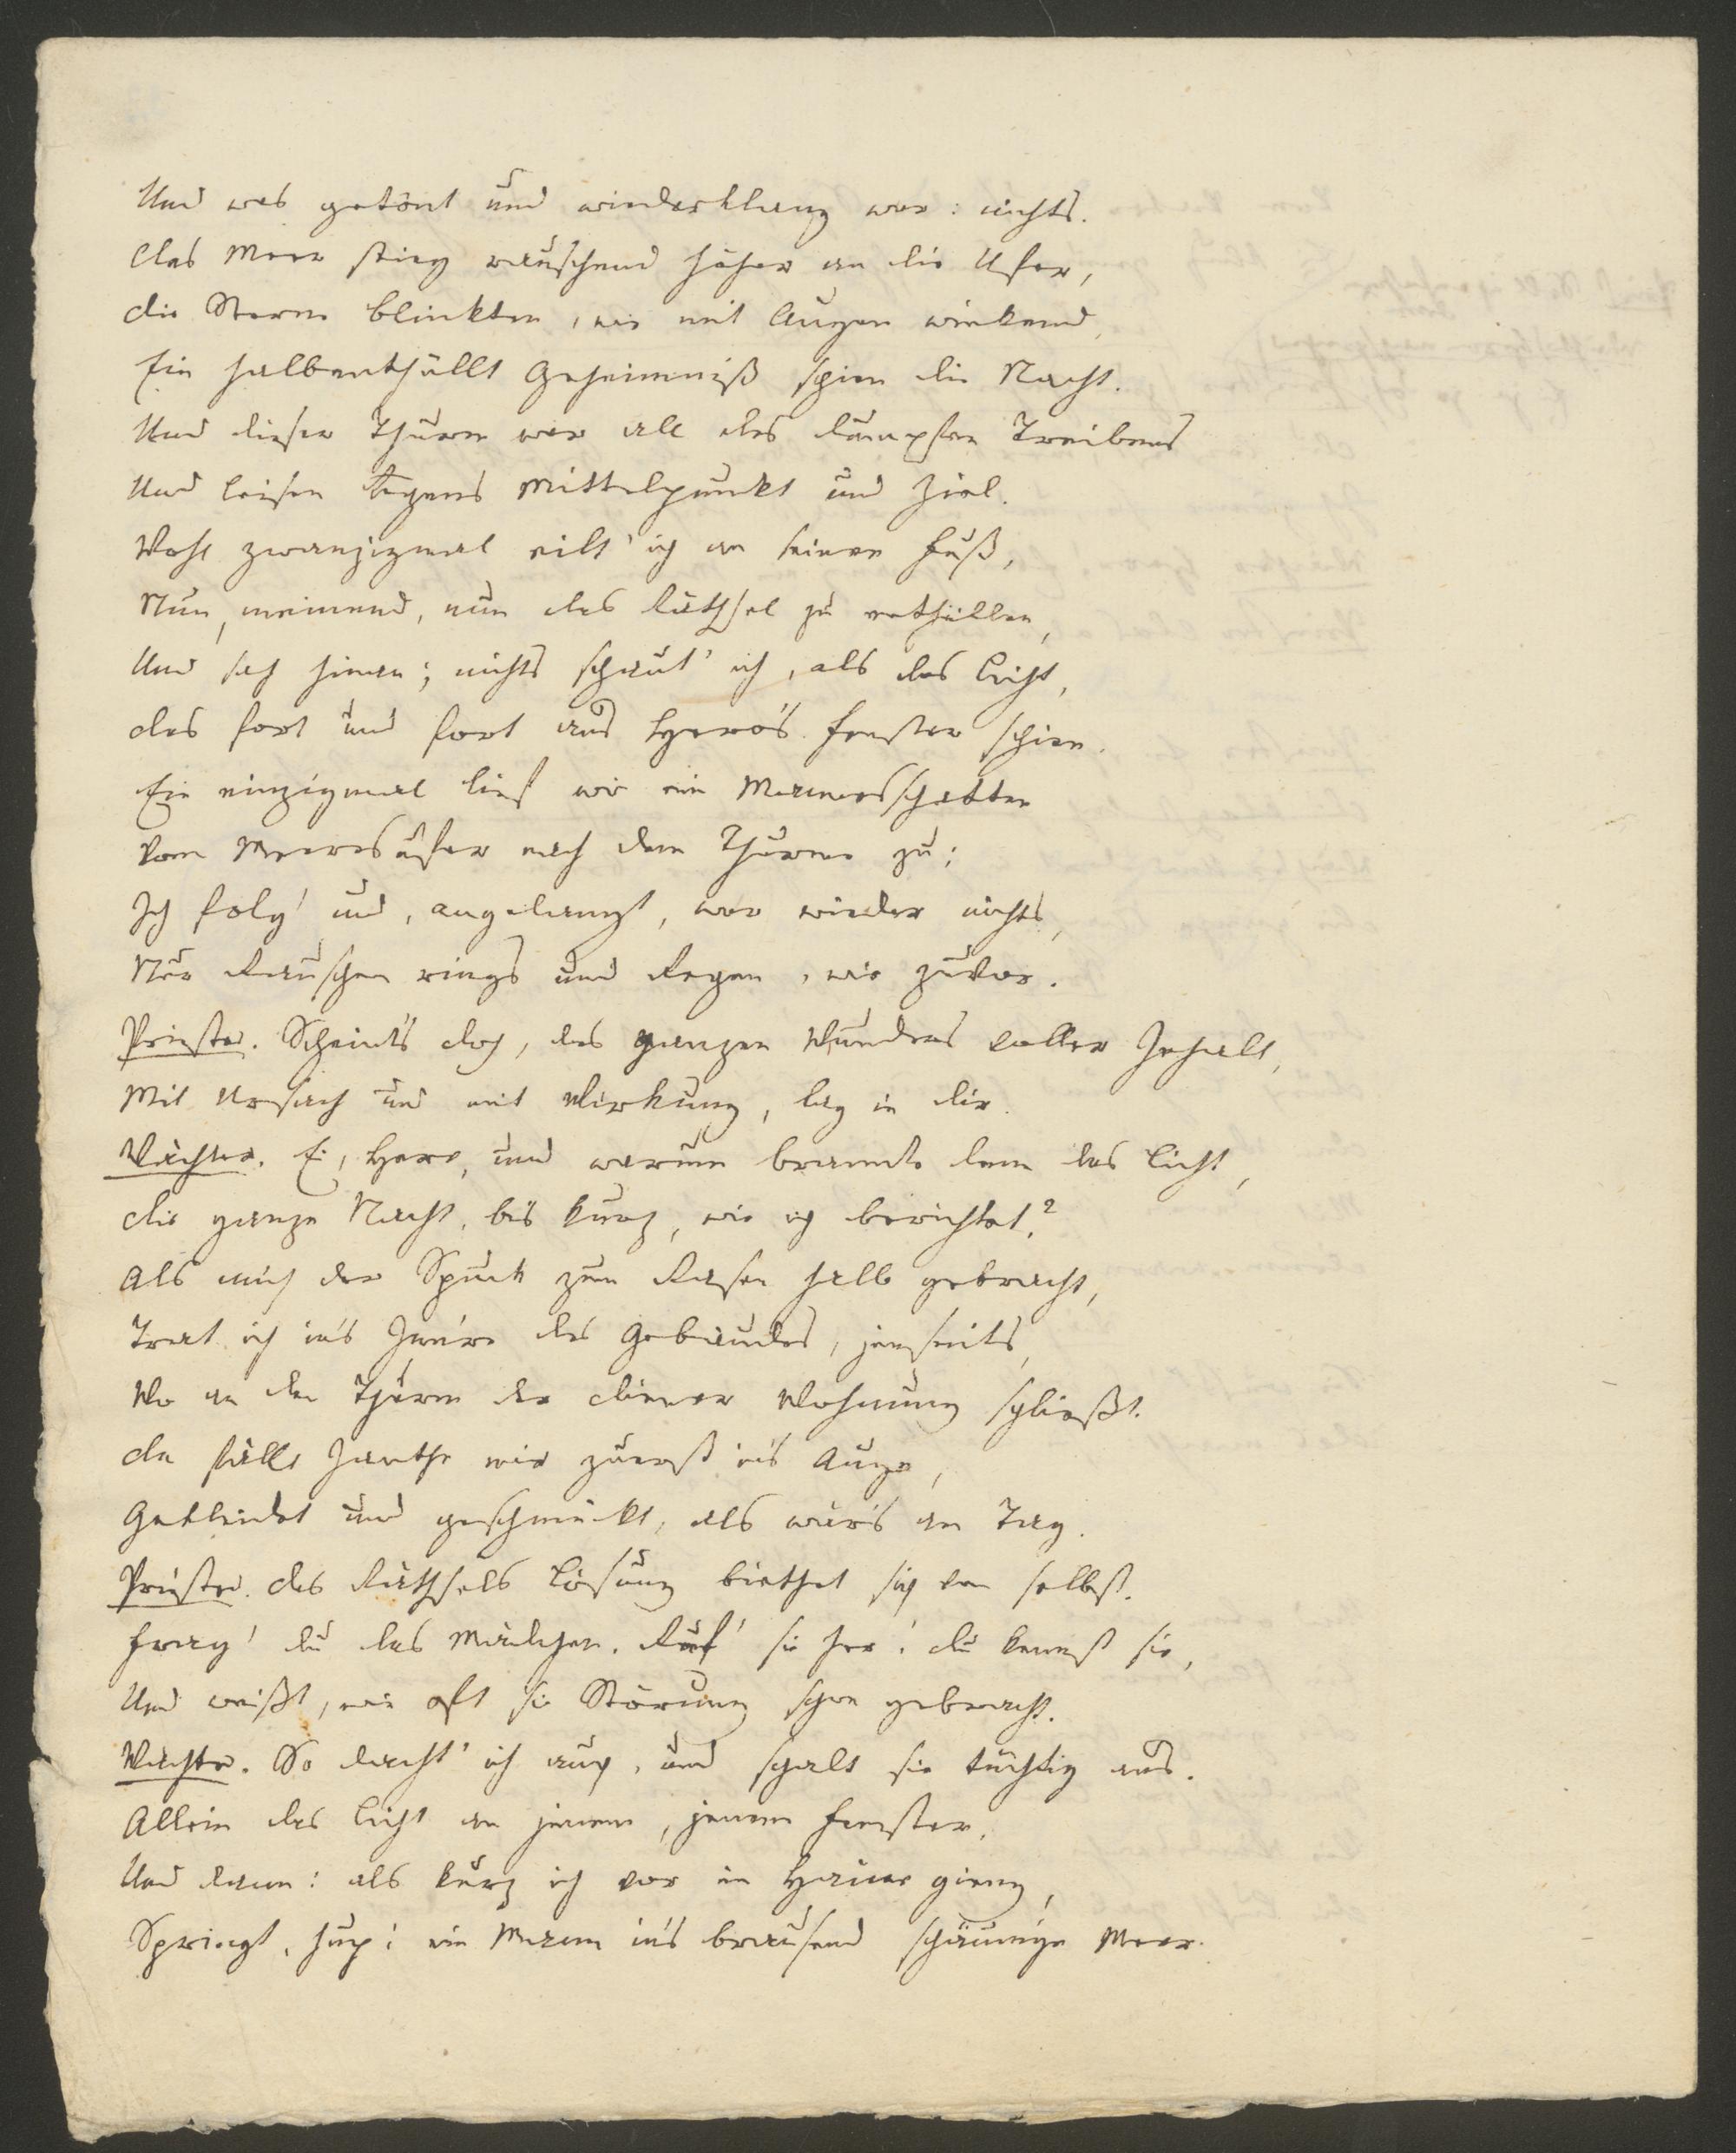 Und was getönt und wiederklang war: nichts.
Das Meer stieg rauschend höher an die Ufer,
die Sterne blinkten, wie mit Augen winkend,
Ein halbenthüllt Geheimniß schien die Nacht.
Und dieser Thurm war all des dumpfen Treibens
Und leisen Regens Mittelpunkt und Ziel.
Wohl zwanzigmal eilt' ich an seinen Fuß,
Nun, meinend, nun das Räthsel zu enthüllen,
Und sah hinan; nichts schaut' ich, als das Licht,
das fort und fort aus Hero's Fenster schien.
Ein einzigmal lief wie ein Mannesschatten
Vom Meeresufer nach dem Thurme zu;
Ich folg' und, angelangt, war wieder nichts,
Nur Rauschen rings und Regen, wie zuvor.
Priester. Scheint's doch, des ganzen Wunders voller Inhalt,
Mit Ursach und mit Wirkung, lag in dir.
Wächter. Ei, Herr, und warum brannte denn das Licht,
die ganze Nacht, bis kurz, wie ich berichtet?
Als mich der Spuck zum Rasen halb gebracht,
Trat ich in's Inn're des Gebäudes, jenseits,
Wo an den Thurm der Diener Wohnung schließt.
da fällt Janthe mir zuerst in's Auge,
Gekleidet und geschmückt, als wär's am Tag.
Priester. des Räthsels Lösung biethet sich von selbst.
Frag' du das Mädchen. Ruf' sie her! du kennst sie,
Und weißt, wie oft sie Störung schon gebracht.
Wächter. So dacht' ich auch, und schalt sie tüchtig aus.
Allein das Licht an jenem, jenem Fenster,
Und dann: als kurz ich vor im Haine gieng,
Springt, husch! ein Mann in's brausend schäum'ge Meer.